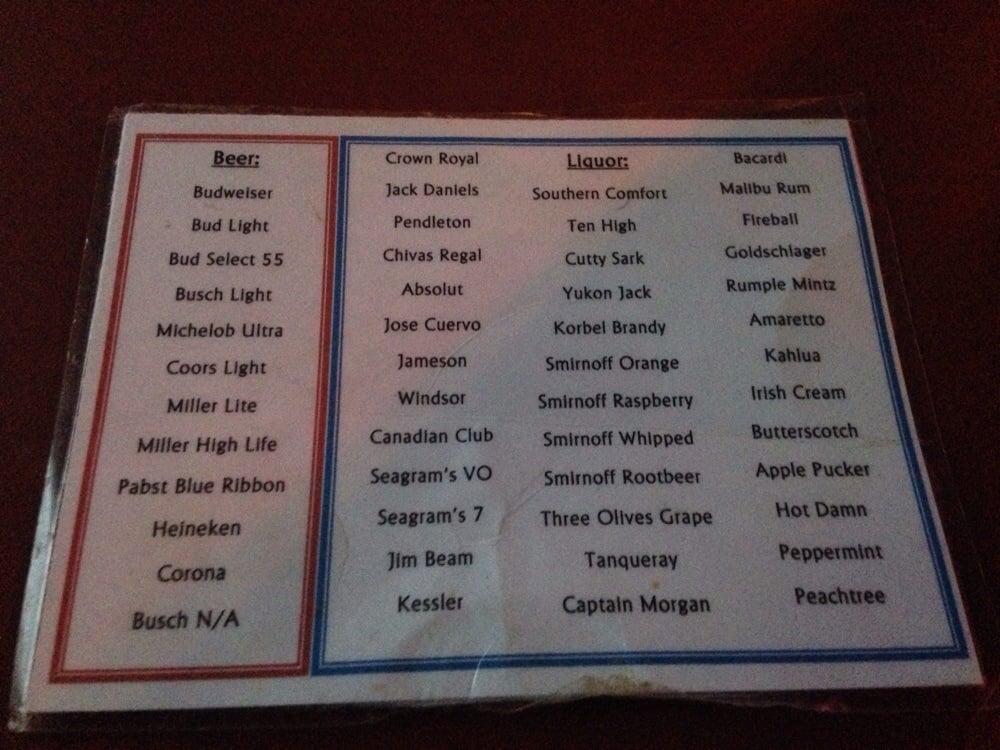 Beer:
Budweiser
Bud Light
Bud Select 55
Busch Light
Michelob Ultra
Coors Light
Miller Lite
Miller High Life
Pabst Blue Ribbon
Heineken
Corona
Busch N/A
Crown Royal
Jack Daniels
Pendleton
Chivas Regal
Absolut
Jose Cuervo
Jameson
Windsor
Canadian Club
Seagram's VO
Seagram's 7
Jim Beam
Kessler
Liquor:
Southern Comfort
Ten High
Cutty Sark
Yukon Jack
Korbel Brandy
Smirnoff Orange
Smirnoff Raspberry
Smirnoff Whipped
Smirnoff Rootbeer
Three Olives Grape
Tanqueray
Captain Morgan
Bacardi
Malibu Rum
Fireball
Goldschlager
Rumple Mintz
Amaretto
Kahlua
Irish Cream
Butterscotch
Apple Pucker
Hot Damn
Peppermint
Peachtree